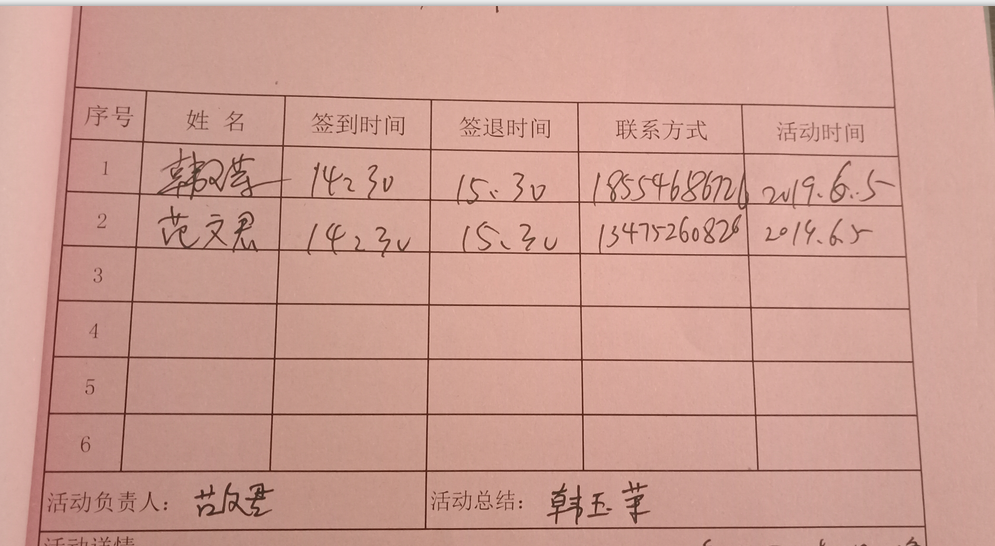 序号 姓名 签到时间 签退时间 联系方式 活动时间
1 韩 14:30 15:30 18554686726 2019.6.5
2 范文君 14:30 15:30 13475260826 2019.6.5
3
4
5
6
活动负责人: 范文君 活动总结: 韩玉苹
活动详情